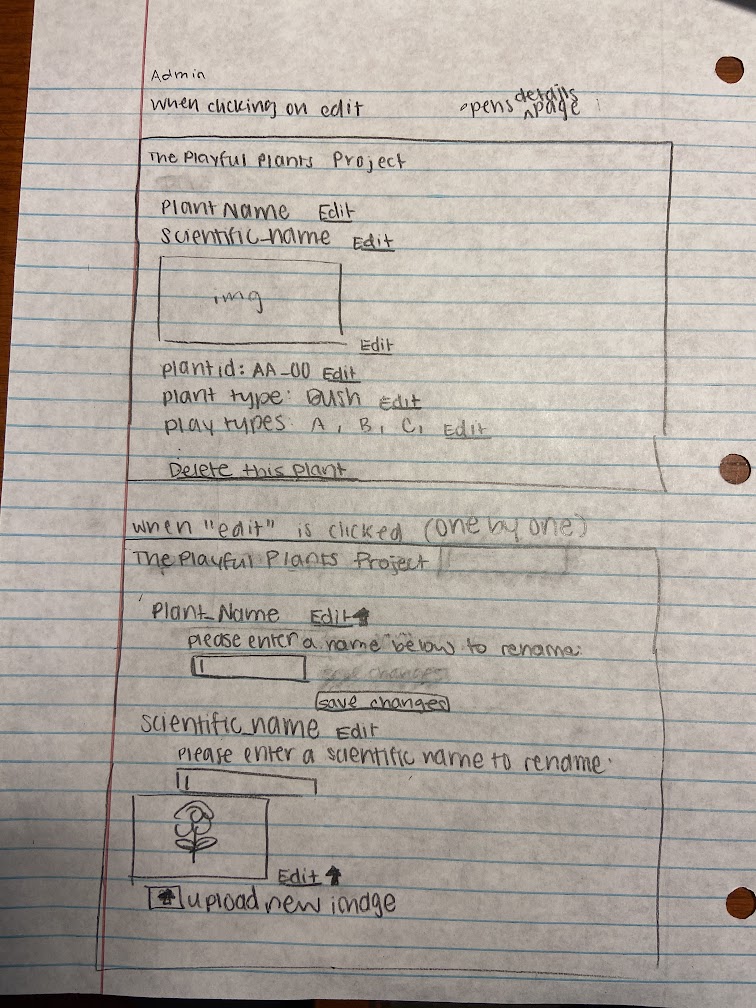 Admin
when clicking on edit opens details page
The Playful Plants Project
Plant Name Edit
scientific_name Edit
img
Edit
plant id: AA_00 Edit
plant type: Bush Edit
play types: A, B, C, Edit
Delete this plant
when "edit" is clicked (one by one)
The Playful Plants Project
Plant_Name Edit
please enter a name below to rename:
save changes
scientific_name Edit
Please enter a scientific name to rename:
Edit
upload new image